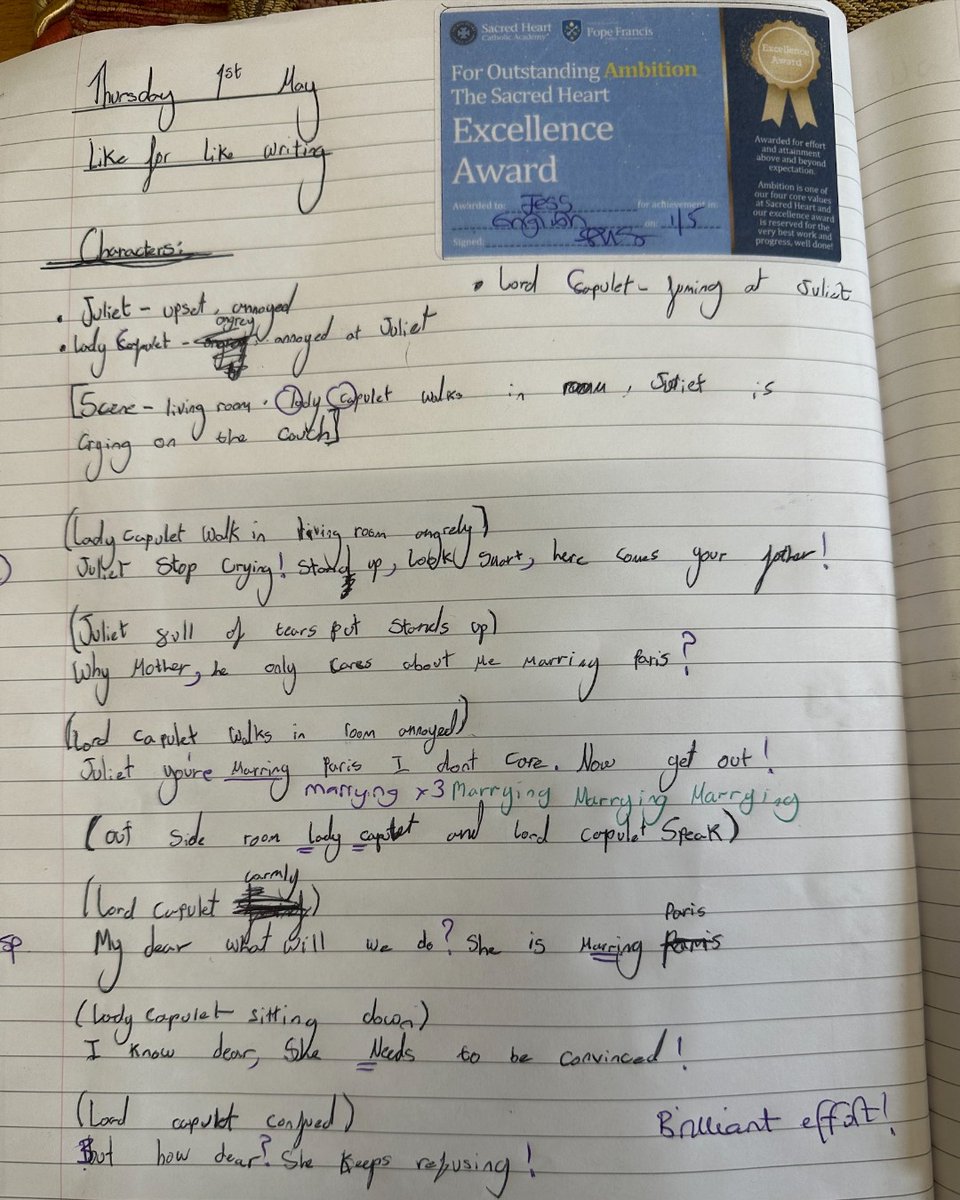 Thursday 1st May
Like for like writing
Sacred Heart
Catholic Academy
Pope Francis
For Outstanding Ambition
The Sacred Heart
Excellence
Award
Awarded to: Jess for achievement in:
English on: 1/5
Signed:
Excellence
Award
Awarded for effort
and attainment
above and beyond
expectation.
Ambition is one of
our four core values
at Sacred Heart and
our excellence award
is reserved for the
very best work and
progress, well done!
Characters:
• Lord Capulet - fuming at Juliet
• Juliet - upset, annoyed
angrey
• Lady Capulet - annoyed at Juliet
[Scene - living room. Lady Capulet walks in room, Juliet is
Crying on the Couch]
(Lady Capulet walk in living room angrely)
Juliet Stop Crying! Stand up, look smart, here comes your father!
(Juliet full of tears but Stands up)
Why Mother, he only cares about me Marring Paris?
(Lord Capulet walks in room annoyed)
Juliet you're Marring Paris I dont care. Now get out!
marrying x3 Marrying Marrying Marrying
(Out side room lady caputet and lord capulet Speak)
carmly
(Lord Capulet )
Paris
sp My dear what will we do? She is Marring Parris
(Lady Capulet sitting down)
I know dear, She Needs to be convinced!
(Lord capulet confued)
Brilliant effort!
But how dear? She keeps refusing!